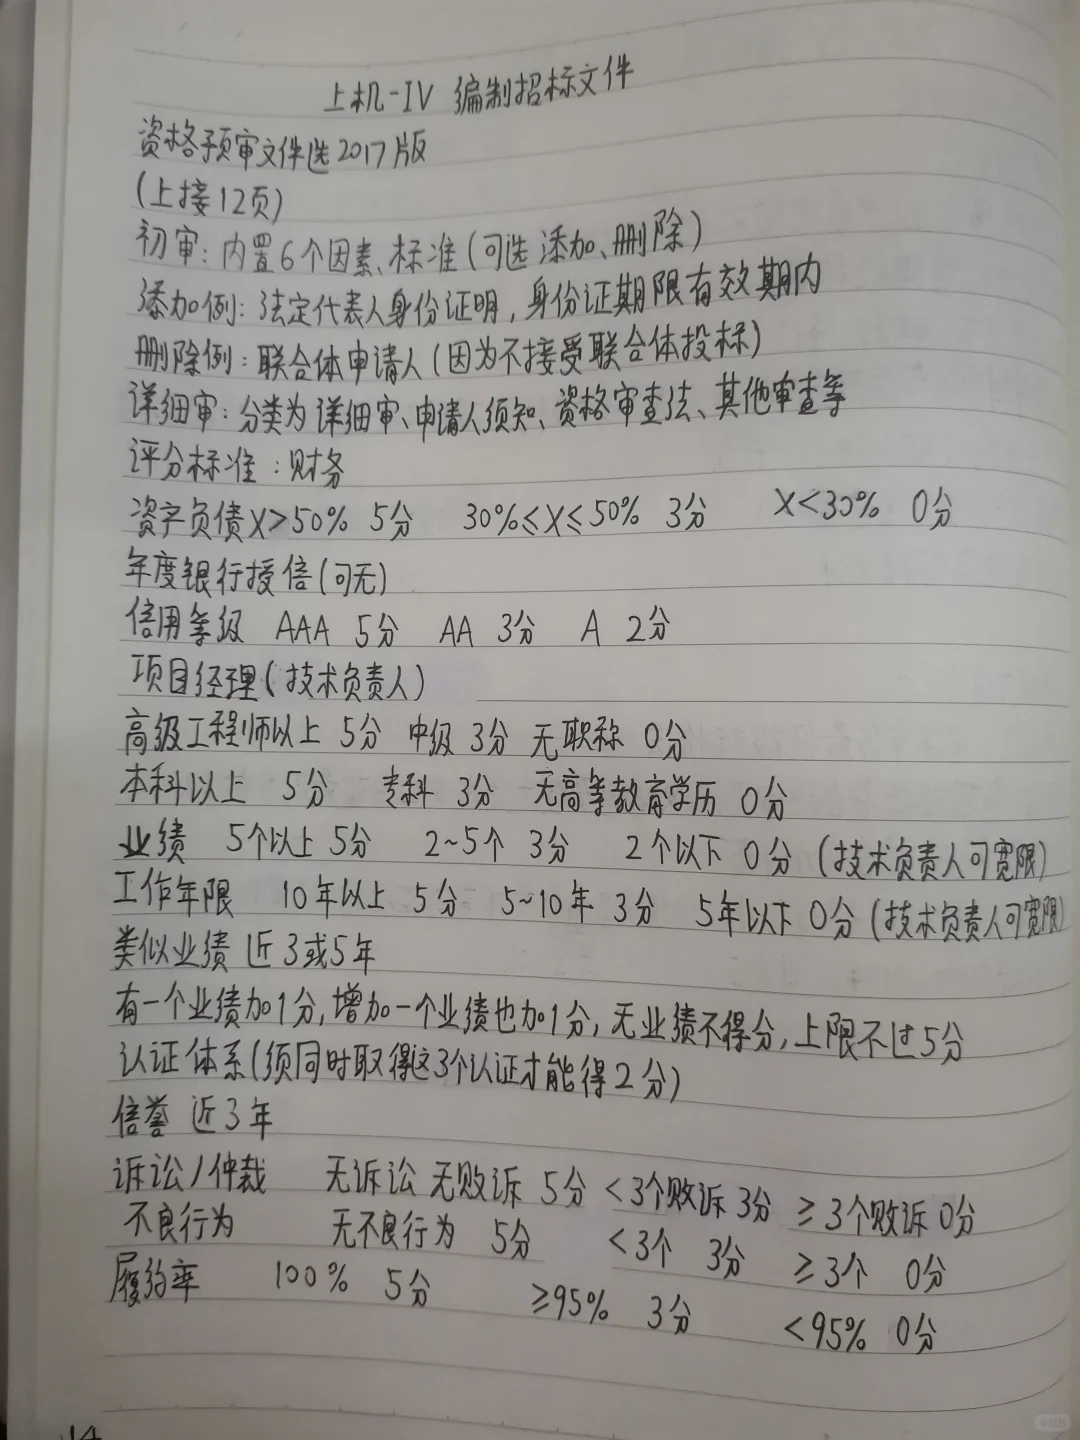 上机-IV 编制招标文件
资格预审文件选2017版
(上接12页)
初审:内置6个因素、标准(可选 添加、删除)
添加例:法定代表人身份证明,身份证期限有效期内
删除例:联合体申请人(因为不接受联合体投标)
详细审:分类为 详细审、申请人须知、资格审查法、其他审查等
评分标准:财务
资产负债X>50% 5分 30%≤X≤50% 3分 X<30% 0分
年度银行授信(可无)
信用等级 AAA 5分 AA 3分 A 2分
项目经理(技术负责人)
高级工程师以上 5分 中级 3分 无职称 0分
本科以上 5分 专科 3分 无高等教育学历 0分
业绩 5个以上 5分 2~5个 3分 2个以下 0分 (技术负责人可宽限)
工作年限 10年以上 5分 5~10年 3分 5年以下 0分(技术负责人可宽限)
类似业绩 近3或5年
有一个业绩加1分,增加一个业绩也加1分,无业绩不得分,上限不过5分
认证体系(须同时取得这3个认证才能得2分)
信誉 近3年
诉讼/仲裁 无诉讼 无败诉 5分 <3个败诉 3分 ≥3个败诉 0分
不良行为 无不良行为 5分 <3个 3分 ≥3个 0分
履约率 100% 5分 ≥95% 3分 <95% 0分
14